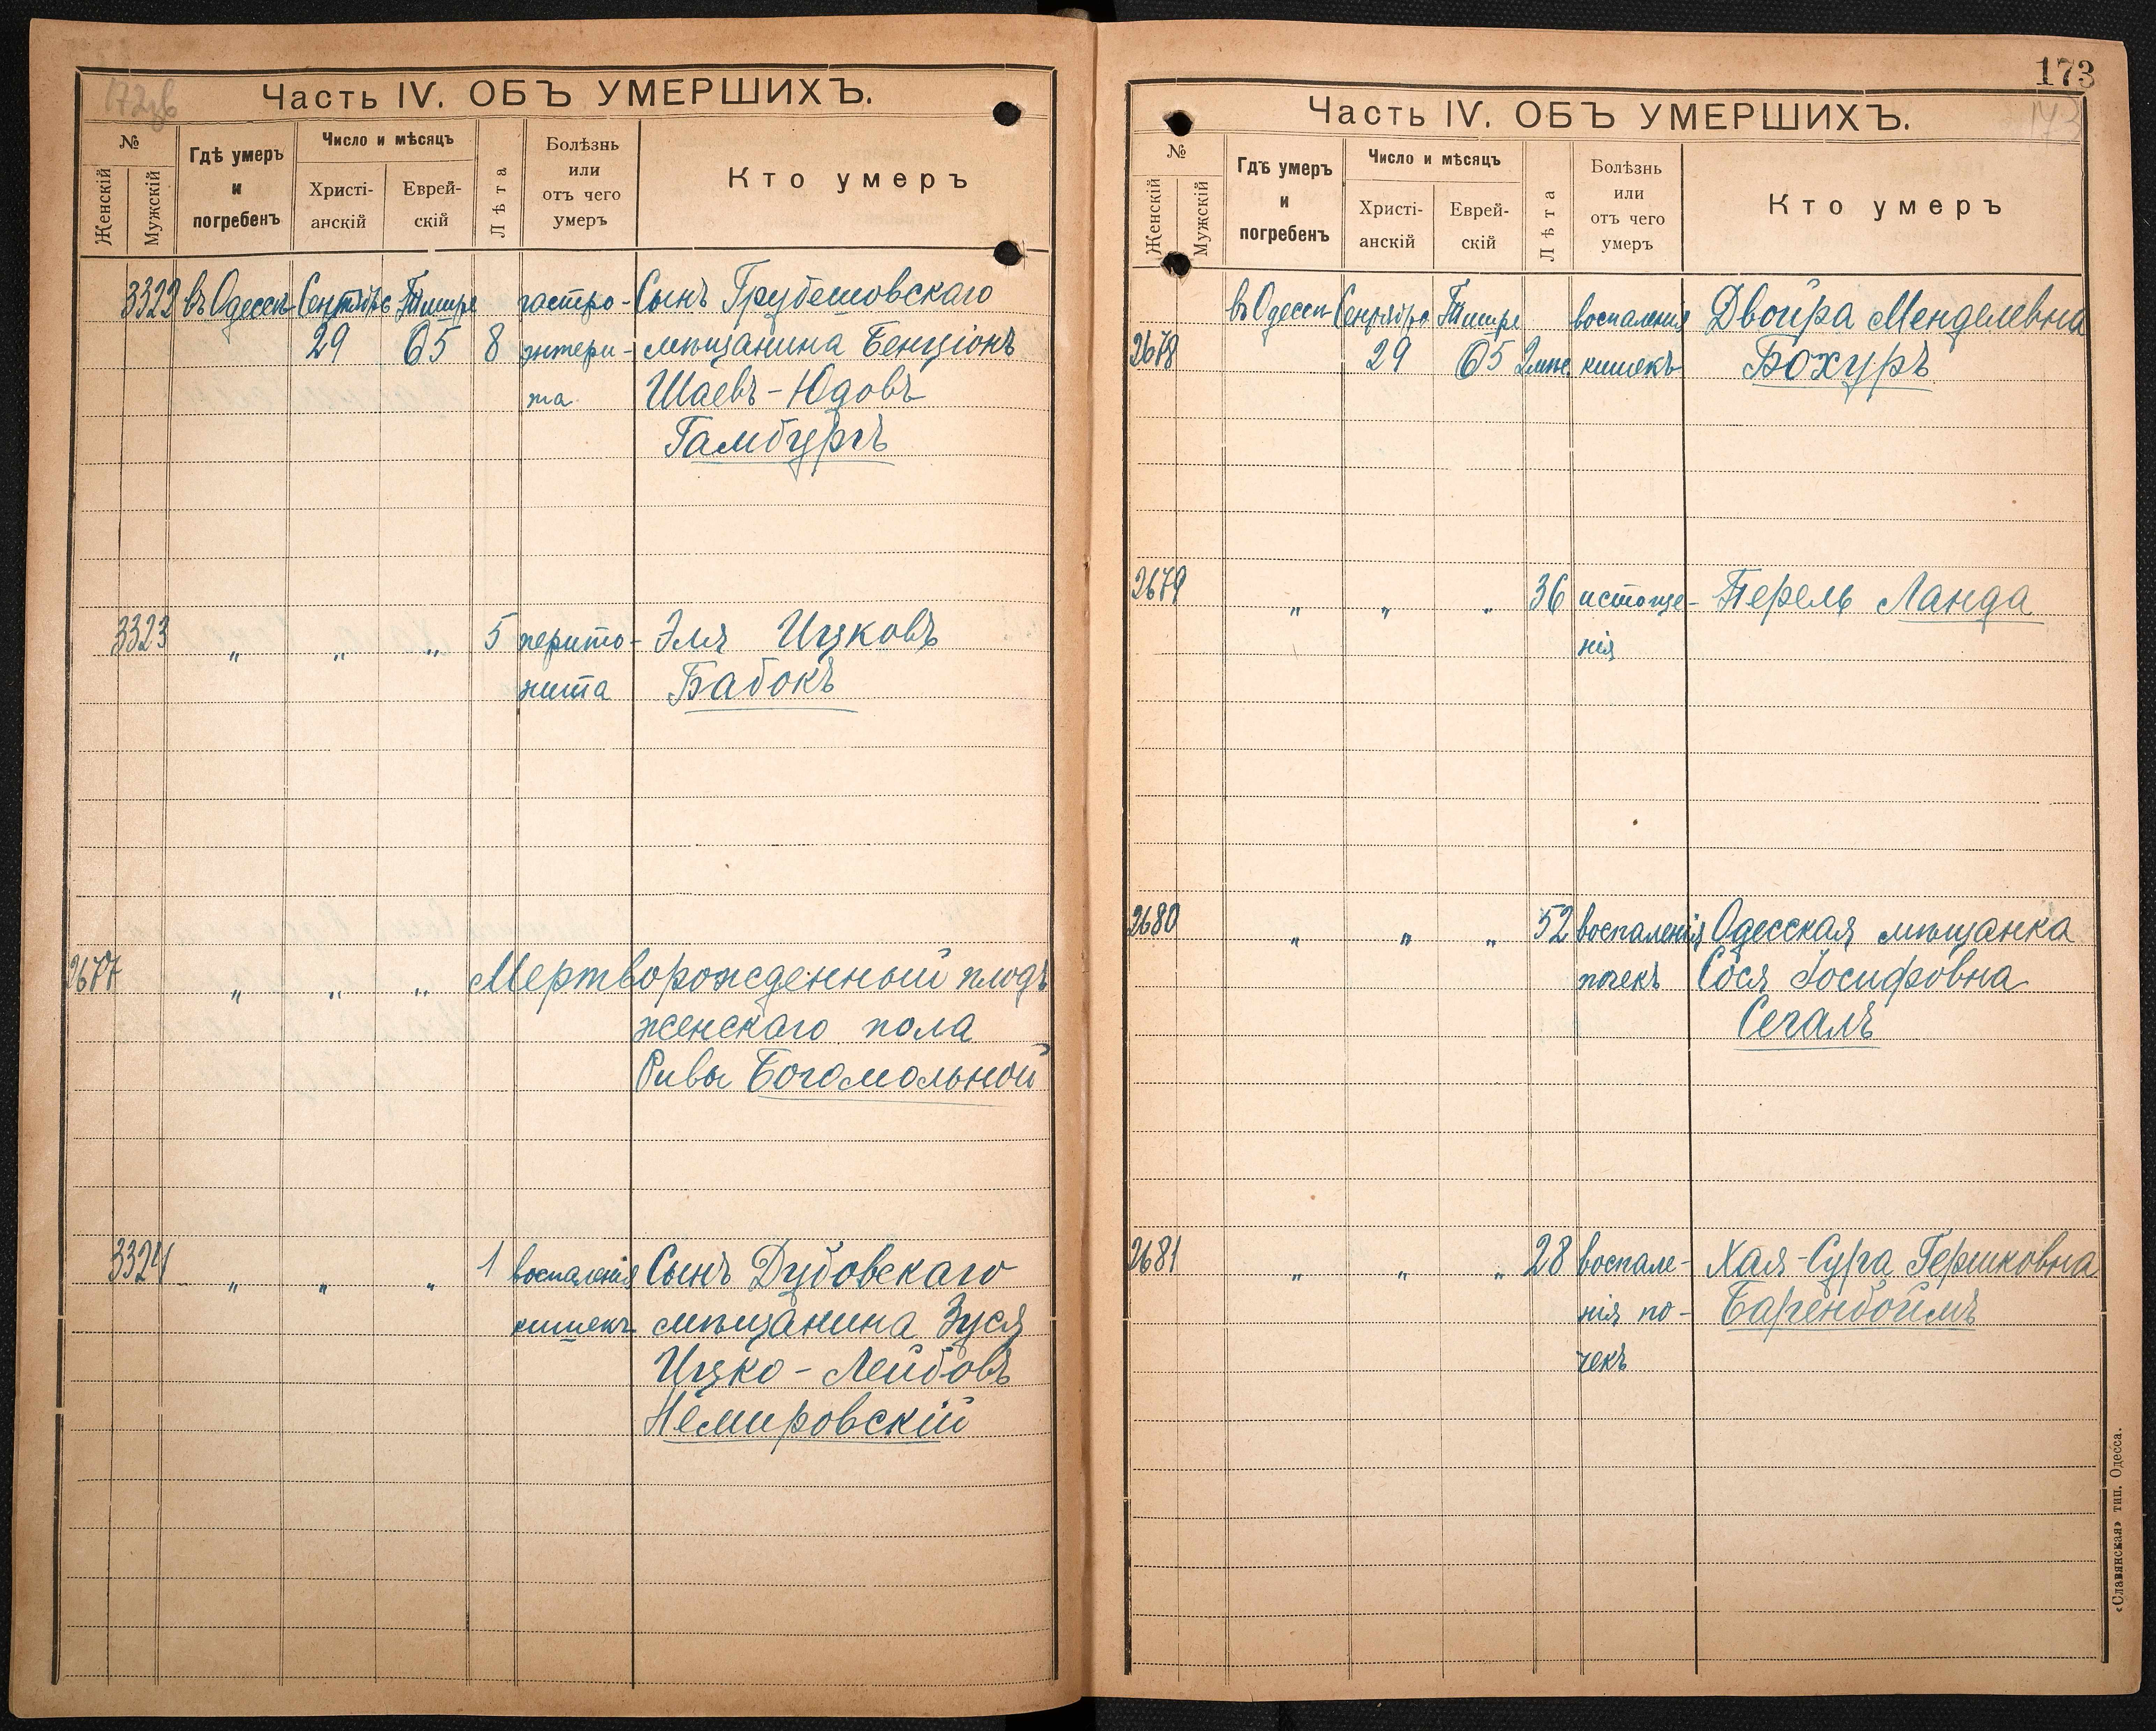 172об
Часть IV. ОБЪ УМЕРШИХЪ.
№
Женскій
Мужскій
Гдѣ умеръ
и
погребенъ
Число и мѣсяцъ
Христі-
анскій
Еврей-
скій
Лѣта
Болѣзнь
или
отъ чего
умеръ
Кто умеръ
3322 въ Одессѣ Сентября Тишре гастро- Сынъ Грубешовскаго
29 65 8 энтери- мѣщанина Бенціонъ
та Шаевъ-Юдовъ
Гамбургъ
3323 " " " 5 перито- Эля Ицковъ
нита Бабокъ
2677 " " " Мертворожденный плодъ
женскаго пола
Ривы Богомольной
3324 " " " 1 воспаленія Сынъ Дубовскаго
кишекъ мѣщанина Зуся
Ицко-Лейбовъ
Немировскій
173
173
Часть IV. ОБЪ УМЕРШИХЪ.
№
Женскій
Мужскій
Гдѣ умеръ
и
погребенъ
Число и мѣсяцъ
Христі-
анскій
Еврей-
скій
Лѣта
Болѣзнь
или
отъ чего
умеръ
Кто умеръ
въ Одессѣ Сентября Тишре воспаленія Двойра Менделевна
2678 29 65 2 кишекъ Бохуръ
2679 " " " 36 истоще- Перель Ланда
нія
2680 " " " 52 воспаленія Одесская мѣщанка
почекъ Сося Іосифовна
Сегалъ
2681 " " " 28 воспале- Хая-Сура Гершковна
нія по- Баренбоймъ
чекъ
«Славянская» тип. Одесса.